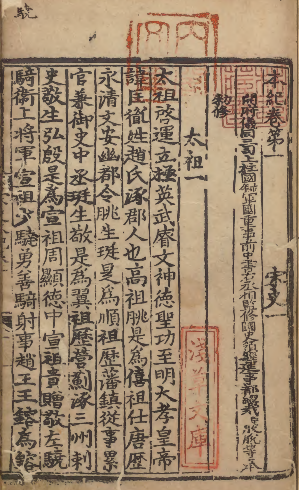 本紀卷第一　宋史一
開府儀同三司上柱國錄軍國重事前中書右丞相監修國史領經筵事都總裁臣脫脫等奉
勅修
太祖一
太祖啓運立極英武睿文神德聖功至明大孝皇帝
諱匡胤姓趙氏涿郡人也高祖朓是為僖祖仕唐歷
永清文安幽都令朓生珽是為順祖歷藩鎮從事累
官兼御史中丞珽生敬是為翼祖歷營薊涿三州刺
史敬生弘殷是為宣祖周顯德中宣祖貴贈敬左驍
騎衛上將軍宣祖少驍勇善騎射事趙王王鎔為鎔
淺草文庫